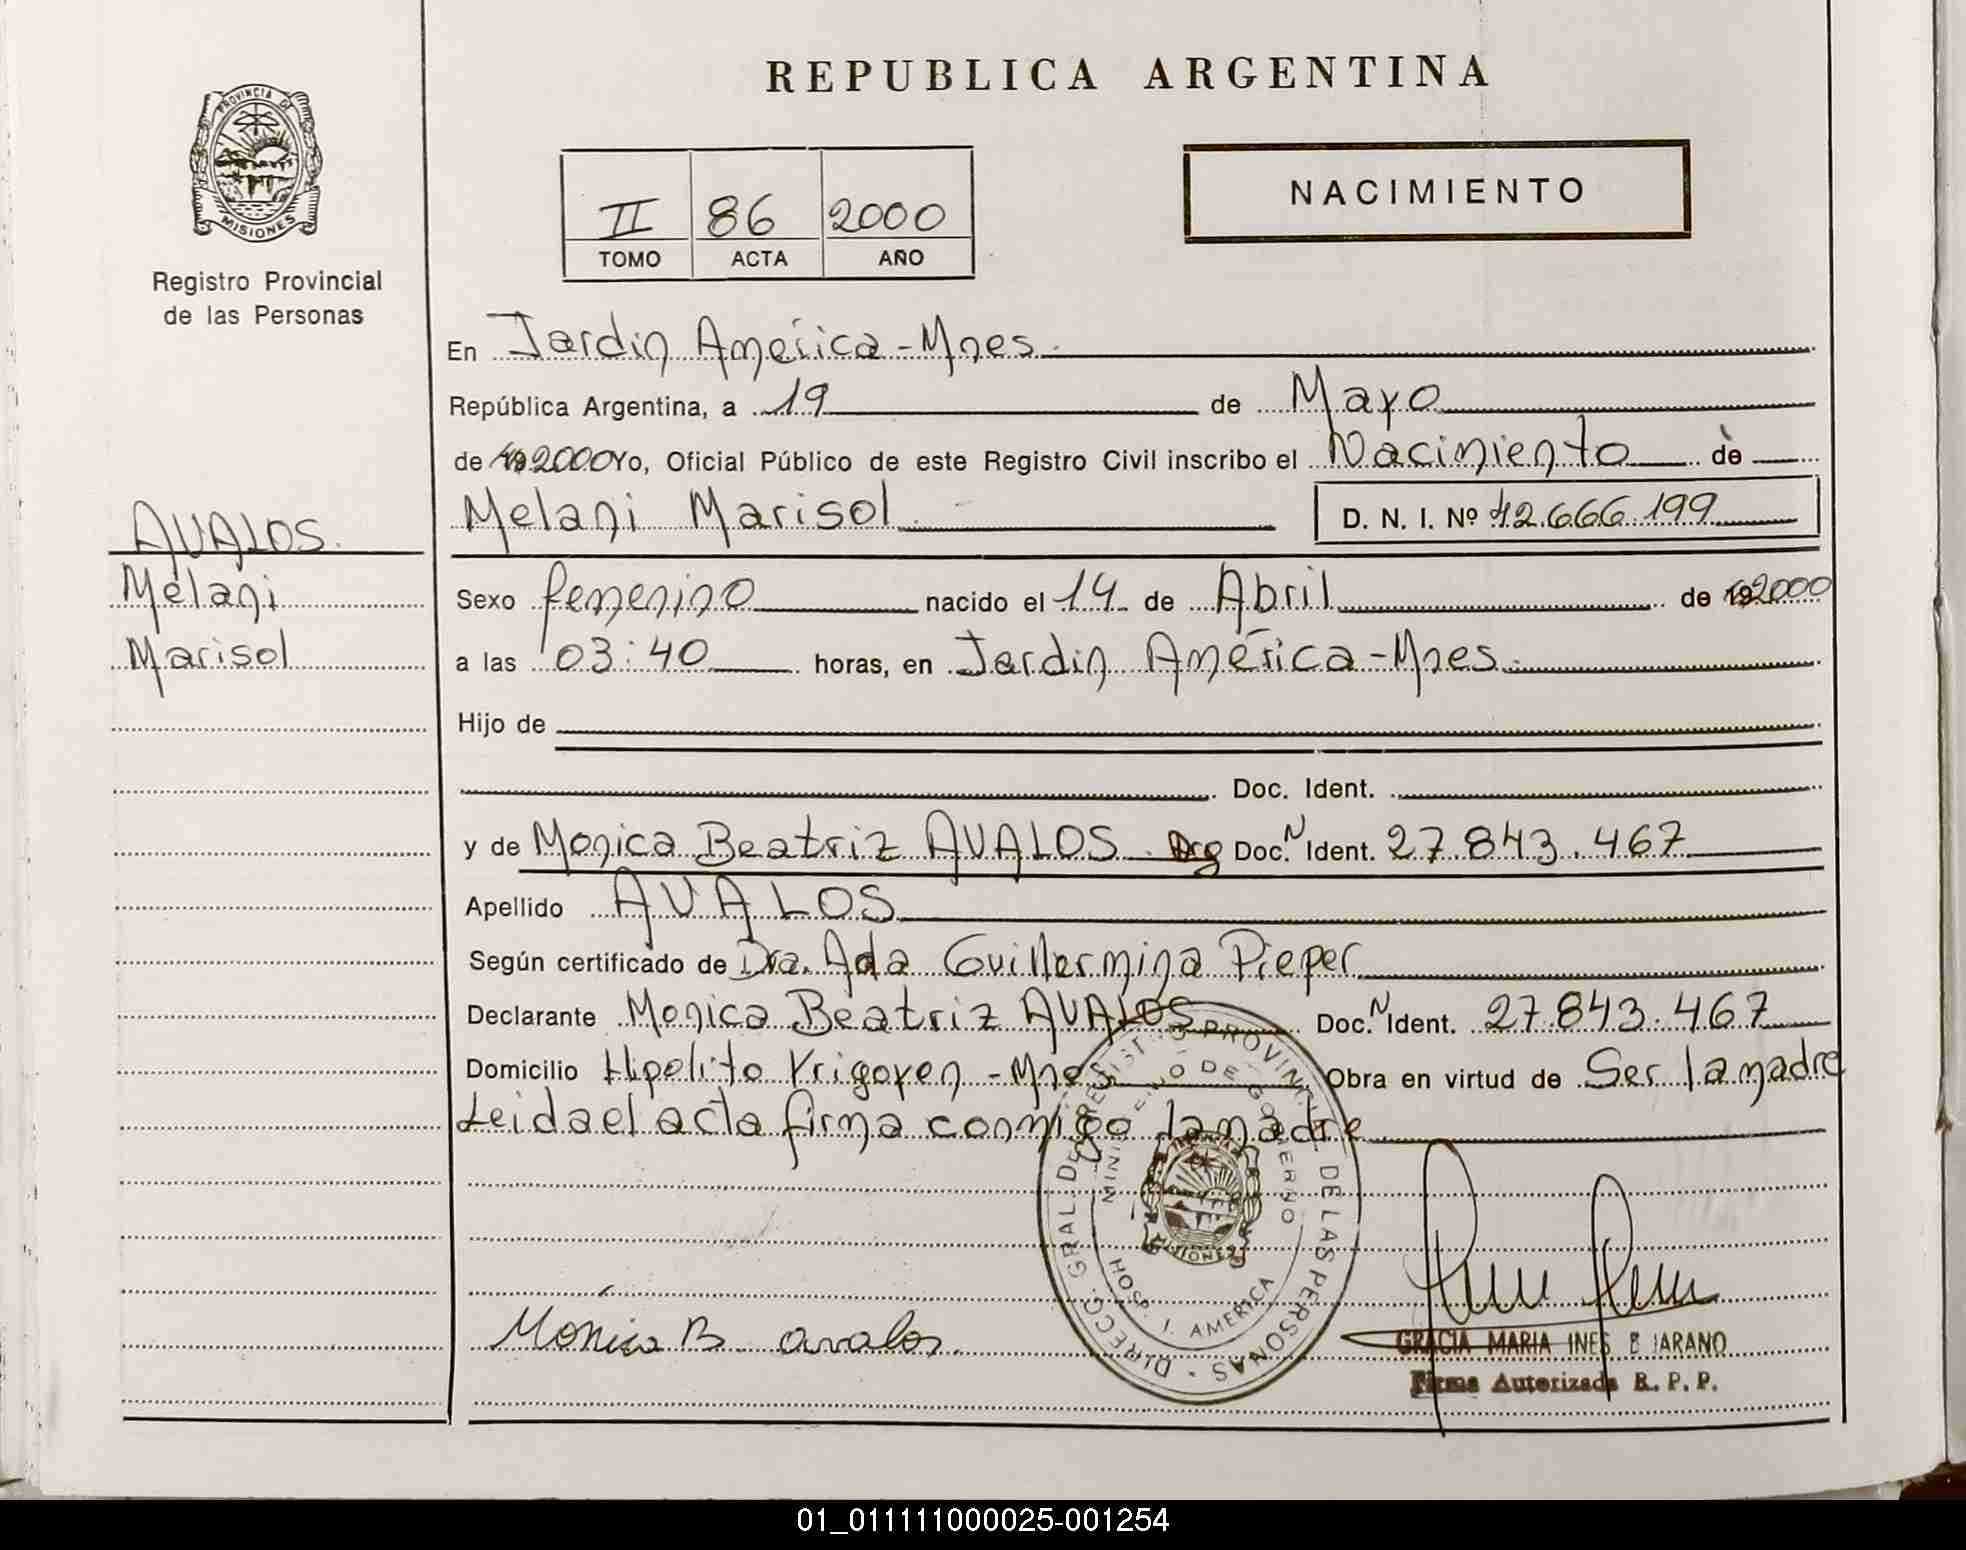 REPUBLICA ARGENTINA
PROVINCIA DE
MISIONES
Registro Provincial
de las Personas
II 86 2000
TOMO ACTA AÑO
NACIMIENTO
En Jardin América-Mnes.
República Argentina, a 19 de Mayo
de 19 2000 Yo, Oficial Público de este Registro Civil inscribo el Nacimiento de
Melani Marisol D. N. I. Nº 42.666.199
AVALOS.
Melani
Marisol
Sexo femenino nacido el 14 de Abril de 19 2000
a las 03:40 horas, en Jardin América-Mnes.
Hijo de
Doc. Ident.
y de Monica Beatriz AVALOS. Arg Doc. N Ident. 27.843.467
Apellido AVALOS
Según certificado de Dra. Ada Guillermina Pieper
Declarante Monica Beatriz AVALOS Doc. N Ident. 27.843.467
Domicilio Hipolito Yrigoyen - Mnes. Obra en virtud de Ser la madre
Leida el acta firma conmigo la madre
DIRECC. GRAL. DE REGISTRO PROVINC. DE LAS PERSONAS
MINISTERIO DE GOBIERNO
MISIONES
HOSP. J. AMERICA
Mónica B. avalos.
GRACIA MARIA INES BEJARANO
Firma Autorizada R. P. P.
01_011111000025-001254